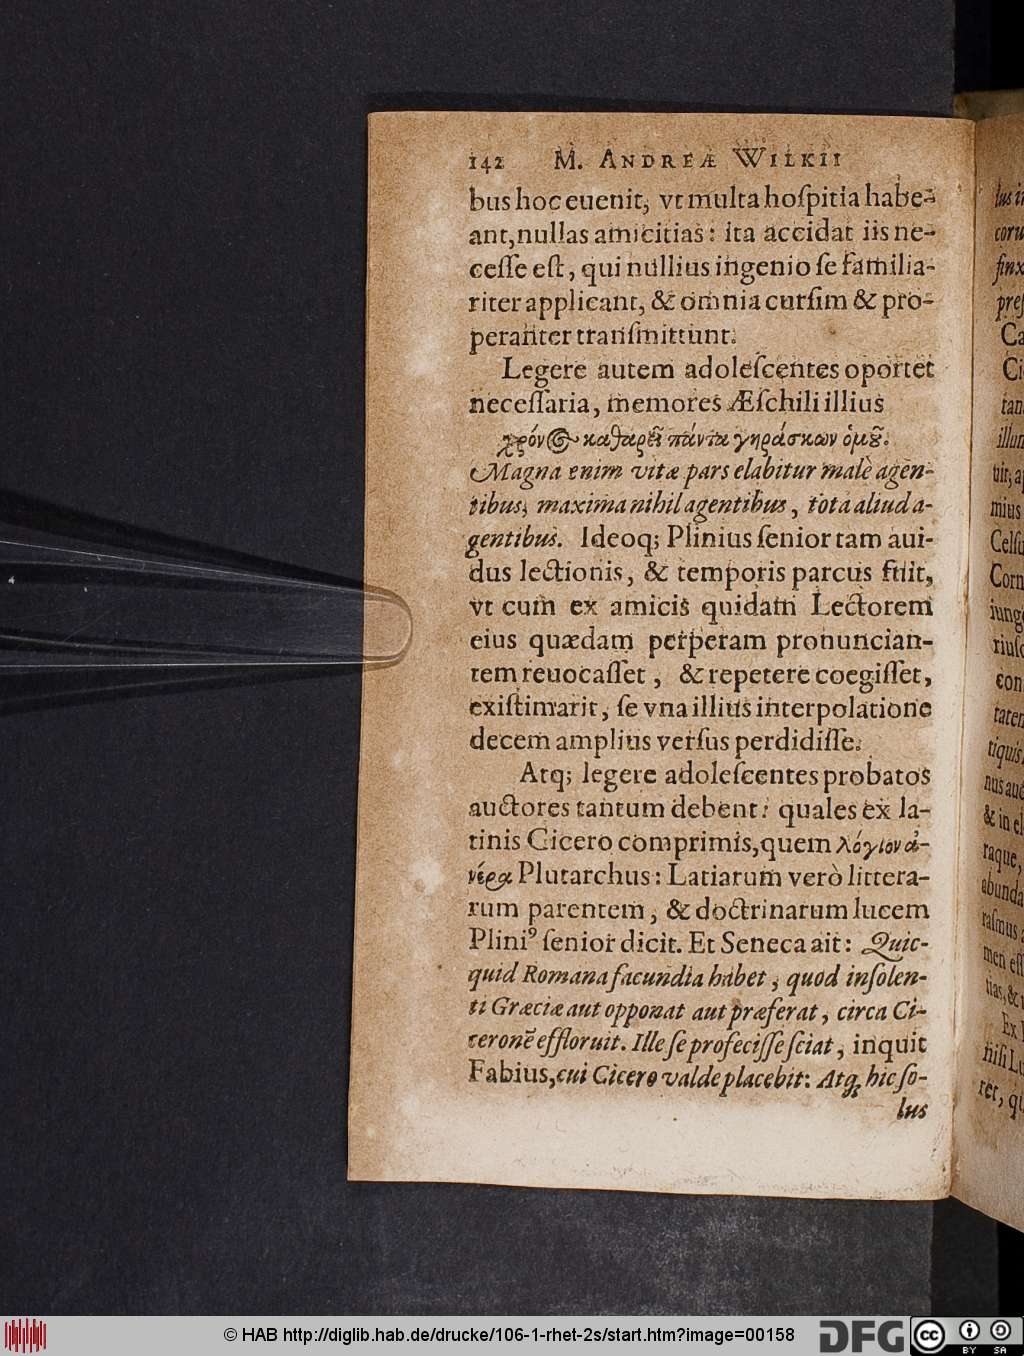 142 M. ANDREÆ WILKII
bus hoc euenit, vt multa hoſpitia habe-
ant, nullas amicitias: ita accidat iis ne-
ceſſe eſt, qui nullius ingenio ſe familia-
riter applicant, & omnia curſim & pro-
peranter tranſmittunt.
Legere autem adoleſcentes oportet
neceſſaria, memores Æſchili illius
χρόνος καθαρεῖ πάντα γηράσκων ὁμοῦ.
Magna enim vitæ pars elabitur malè agen-
tibus, maxima nihil agentibus, tota aliud a-
gentibus. Ideoq; Plinius ſenior tam aui-
dus lectionis, & temporis parcus fuit,
vt cum ex amicis quidam Lectorem
eius quædam perperam pronuncian-
tem reuocaſſet, & repetere coegiſſet,
exiſtimarit, ſe vna illius interpolatione
decem amplius verſus perdidiſſe.
Atq; legere adoleſcentes probatos
auctores tantum debent: quales ex la-
tinis Cicero comprimis, quem λόγιον ἀ-
νέρα Plutarchus: Latiarum verò littera-
rum parentem, & doctrinarum lucem
Pliniꝰ ſenior dicit. Et Seneca ait: Quic-
quid Romana facundia habet, quod inſolen-
ti Græciæ aut opponat aut præferat, circa Ci-
ceronẽ effloruit. Ille ſe profeciſſe ſciat, inquit
Fabius, cui Cicero valde placebit: Atq; hic ſo-
lus
© HAB http://diglib.hab.de/drucke/106-1-rhet-2s/start.htm?image=00158
DFG
cc
BY SA